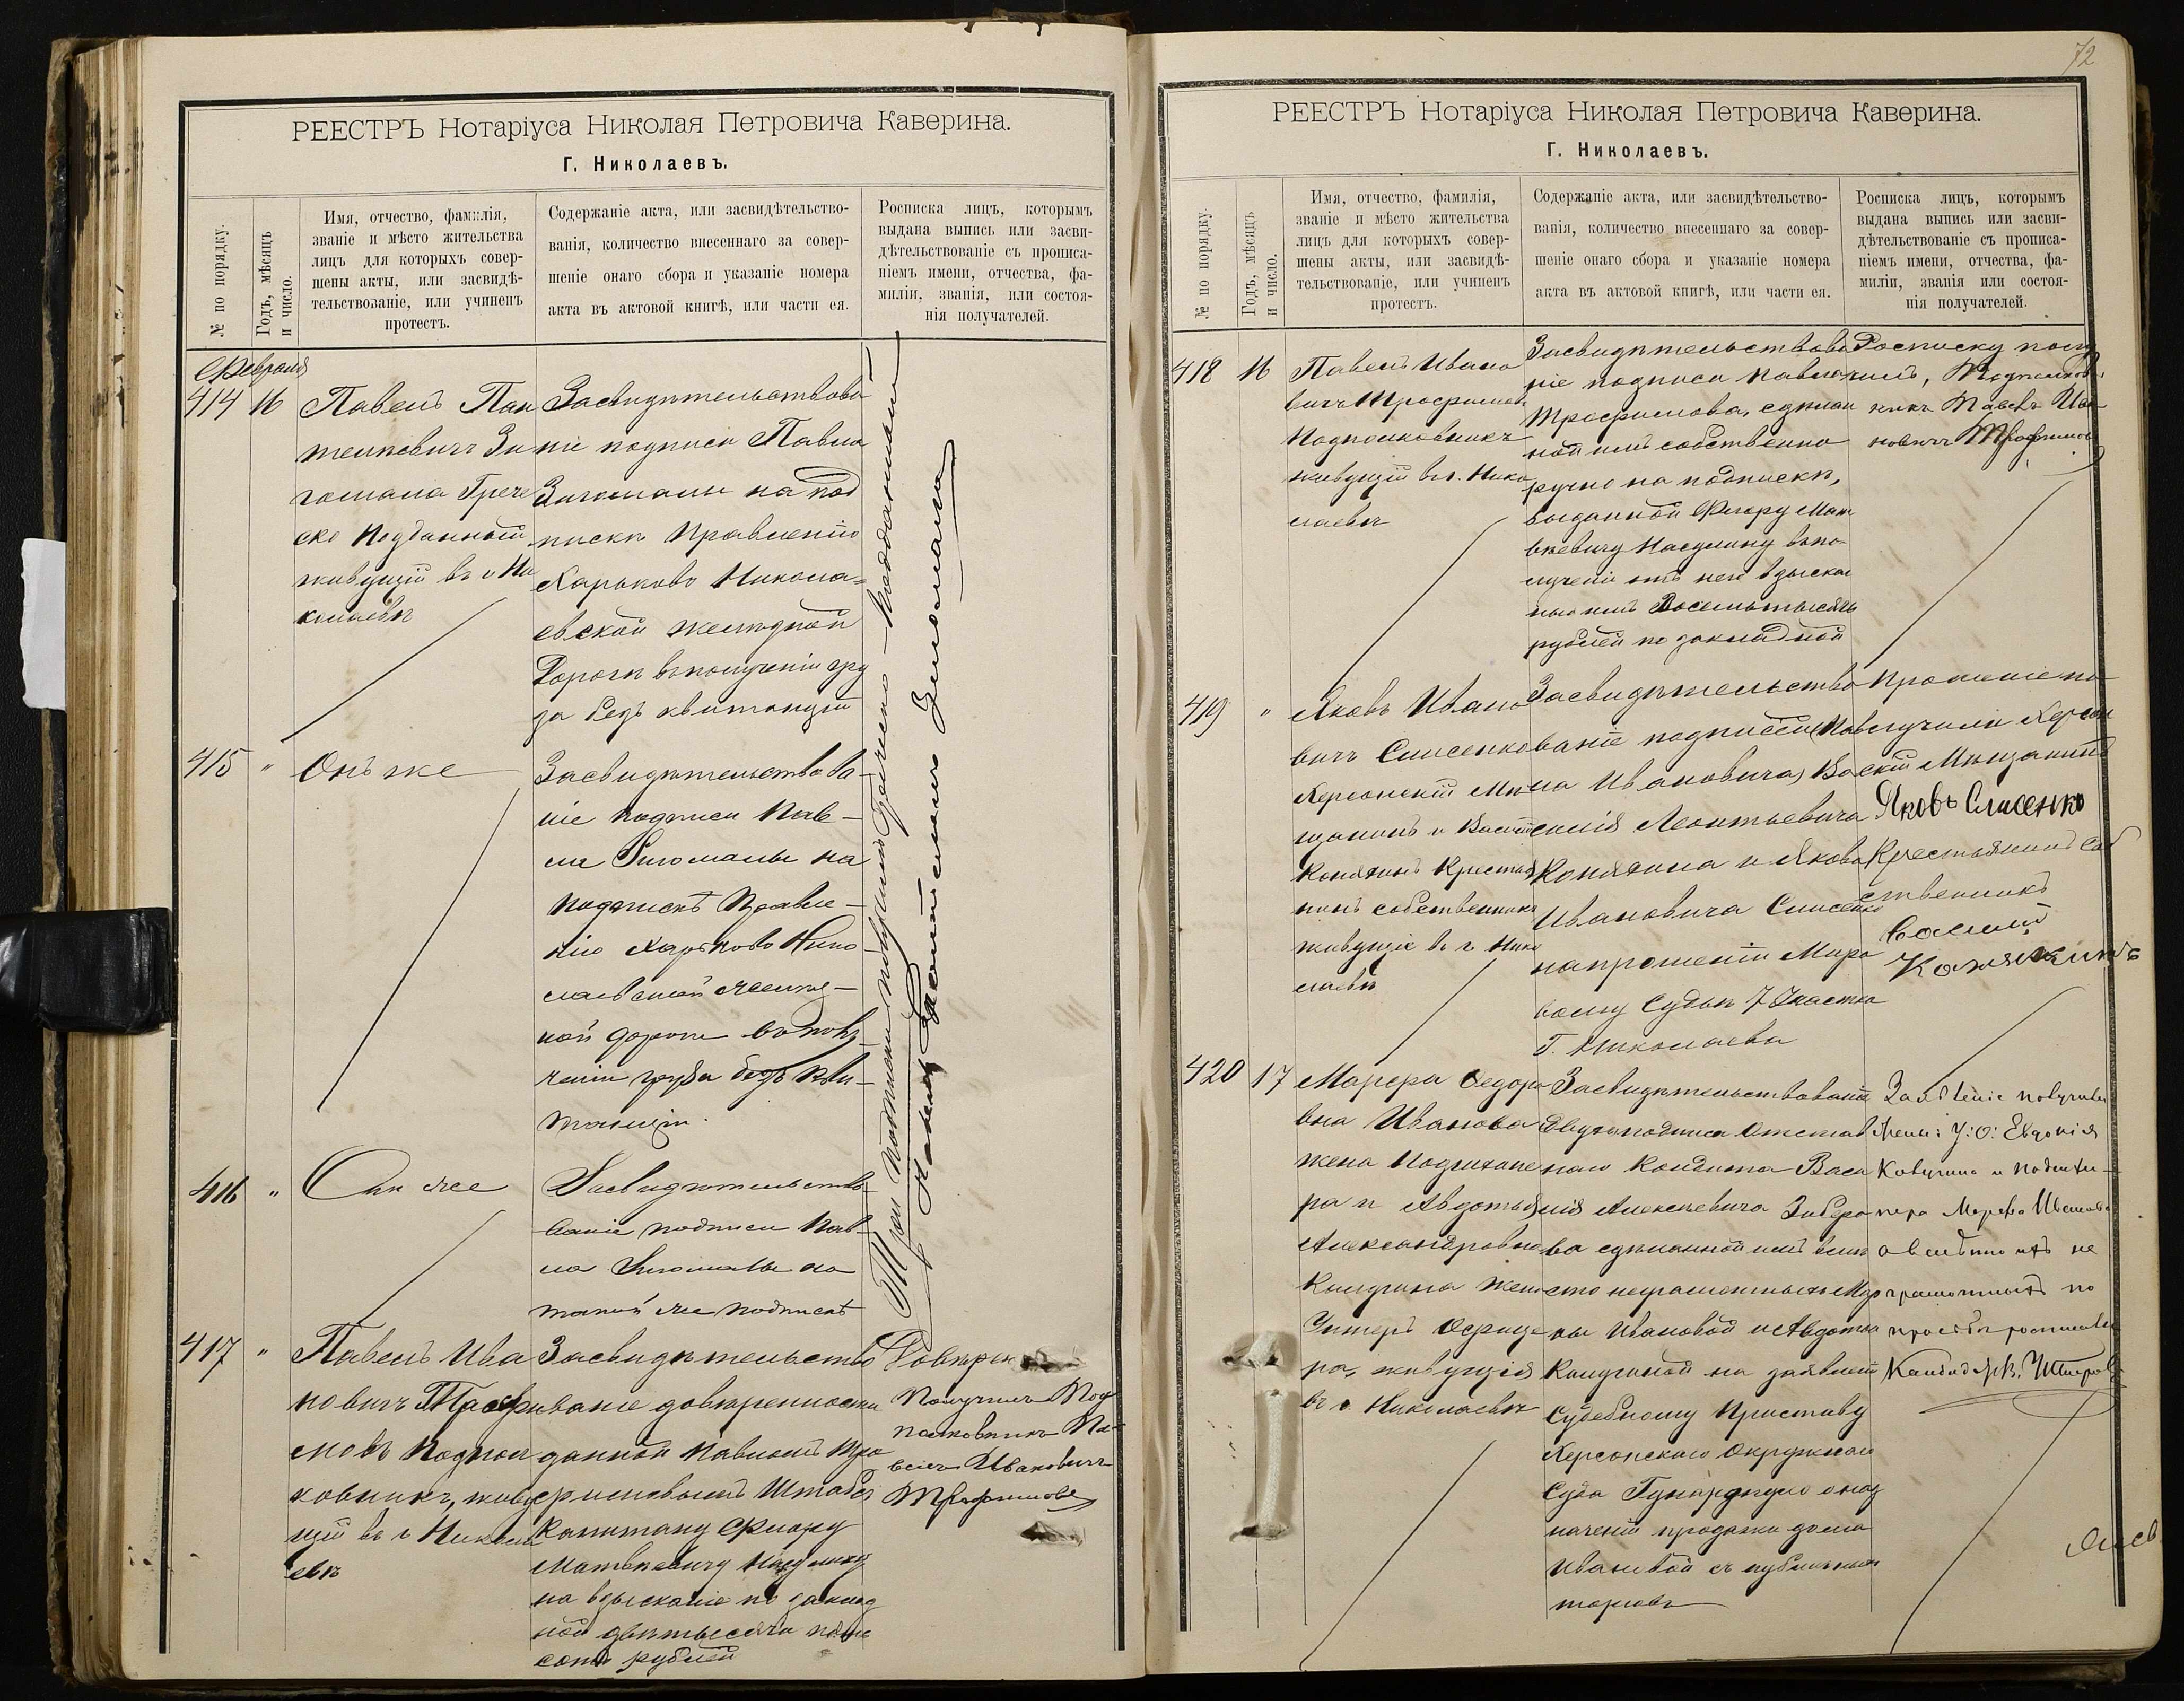 РЕЕСТРЪ Нотаріуса Николая Петровича Каверина.
Г. Николаевъ.
№ по порядку.
Годъ, мѣсяцъ
и число.
Имя, отчество, фамилія,
званіе и мѣсто жительства
лицъ для которыхъ совер-
шены акты, или засвидѣ-
тельствованіе, или учиненъ
протестъ.
Содержаніе акта, или засвидѣтельство-
ванія, количество внесеннаго за совер-
шеніе онаго сбора и указаніе номера
акта въ актовой книгѣ, или части ея.
Росписка лицъ, которымъ
выдана выпись или засви-
дѣтельствованіе съ прописа-
ніемъ имени, отчества, фа-
миліи, званія, или состоя-
нія получателей.
Февраля
414 16
Павелъ Пан
телневичъ
Грече
ско Подданный
живущій въ г Ни
колаевѣ
Засвидѣтельствова
ніе подписи Павла
на под
пискѣ Правленію
Харьково Никола=
евской желѣзной
Дороги въ полученіи гру
за безъ квитанціи
415 "
Онъ же
Засвидѣтельствова-
ніе подписи Пав-
ла на
подпискѣ Правле-
нію Харьково Нико-
лаевской желѣз-
ной дороги въ полу-
ченіи груза безъ кви-
танціи.
416 "
Онъ же
Засвидѣтельство-
ваніе подписи Пав-
ла на
такой же подпискѣ
Три подписки получилъ Греческо-Подданный
417 "
Павелъ Ива
новичъ Трофи
мовъ Подпол
ковникъ, живу
щій въ г Никола
евѣ
Засвидѣтельство
ваніе довѣренности
данной Павломъ Тро
фимовымъ Штабсъ
Капитану Флору
Матвѣевичу
на взысканіе по заклад
ной двѣ тысячи пять
сотъ рублей
Получилъ Под
полковникъ Па-
велъ Ивановичъ
Трофимовъ
72
РЕЕСТРЪ Нотаріуса Николая Петровича Каверина.
Г. Николаевъ.
№ по порядку.
Годъ, мѣсяцъ
и число.
Имя, отчество, фамилія,
званіе и мѣсто жительства
лицъ для которыхъ совер-
шены акты, или засвидѣ-
тельствованіе, или учиненъ
протестъ.
Содержаніе акта, или засвидѣтельство-
ванія, количество внесеннаго за совер-
шеніе онаго сбора и указаніе номера
акта въ актовой книгѣ, или части ея.
Росписка лицъ, которымъ
выдана выпись или засви-
дѣтельствованіе съ прописа-
ніемъ имени, отчества, фа-
миліи, званія или состоя-
нія получателей.
418 16
Павелъ Ивано
вичъ Трофимовъ
Подполковникъ
живущій въ г. Нико
лаевѣ
Засвидѣтельствова
ніе подписи Павла
Трофимова, сдѣлан
ной имъ собственно
ручно на подпискѣ,
выданной Флору Мат
вѣевичу въ по-
лученіи отъ него взыскан
ныхъ имъ восемь тысячъ
рублей по закладной
Росписку полу
чилъ, Подполков
никъ Павелъ Ива
новичъ Трофимовъ
419 "
Яковъ Ивано
вичъ Слисенко
Херсонскій Мѣ
щанинъ и Василій
крестья
нинъ собственникъ
живущіе въ г. Нико
лаевѣ
Засвидѣтельство
ваніе подписей
Ивановича) Ва
силія Леонтьевича
и Якова
Ивановича Слисенко
на прошеніи Миро
вому Судьѣ 7 Участка
Г. Николаева
Прошеніе по
лучили Херсон
скій Мѣщанинъ
Яковъ Слисенко
Крестьянинъ Соб
ственникъ
Василій
420 17
Марфа Федоро
вна Иванова
жена Подшкипе
ра и Авдотья
Александровна
Калугина жена
Унтеръ Офице
ра, живущія
въ г. Николаевѣ
Засвидѣтельствованіе
двухъ подписи Отстав
наго Кондитора Васи
лія Алексѣевича
ва сдѣланной имъ вмѣ
сто неграмотныхъ Мар
фы Ивановой и Авдотьи
Калугиной на заявленіи
Судебному Приставу
Херсонскаго Окружнаго
Суда о наз
наченіи продажи дома
Ивановой съ публичныхъ
торговъ
Заявленіе получили
жены: У: О: Евдокія
Калугина и подшки-
пера Марфа Иванова
а вмѣсто ихъ не
грамотныхъ по
просьбѣ росписался